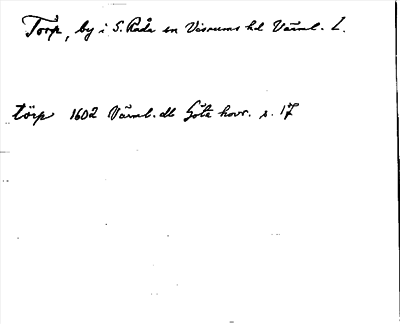 Torp, by i S. Råda sn Visnums hd Värml. L.
törp 1602 Värml. db Göta hovr. s. 17